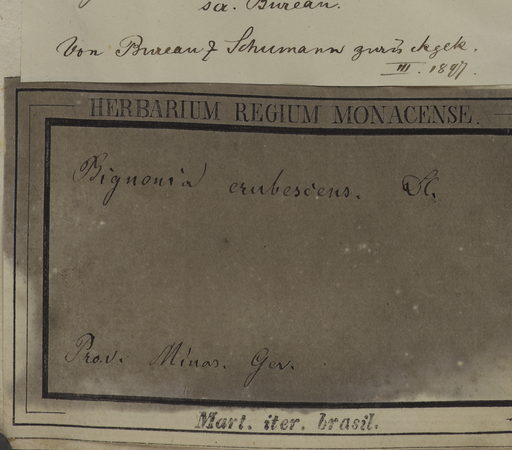 scr. Bureau.
Von Bureau & Schumann zurückgek.
III. 1897.
HERBARIUM REGIUM MONACENSE.
Bignonia erubescens.
Prov. Minas. Ger.
Mart. iter. brasil.